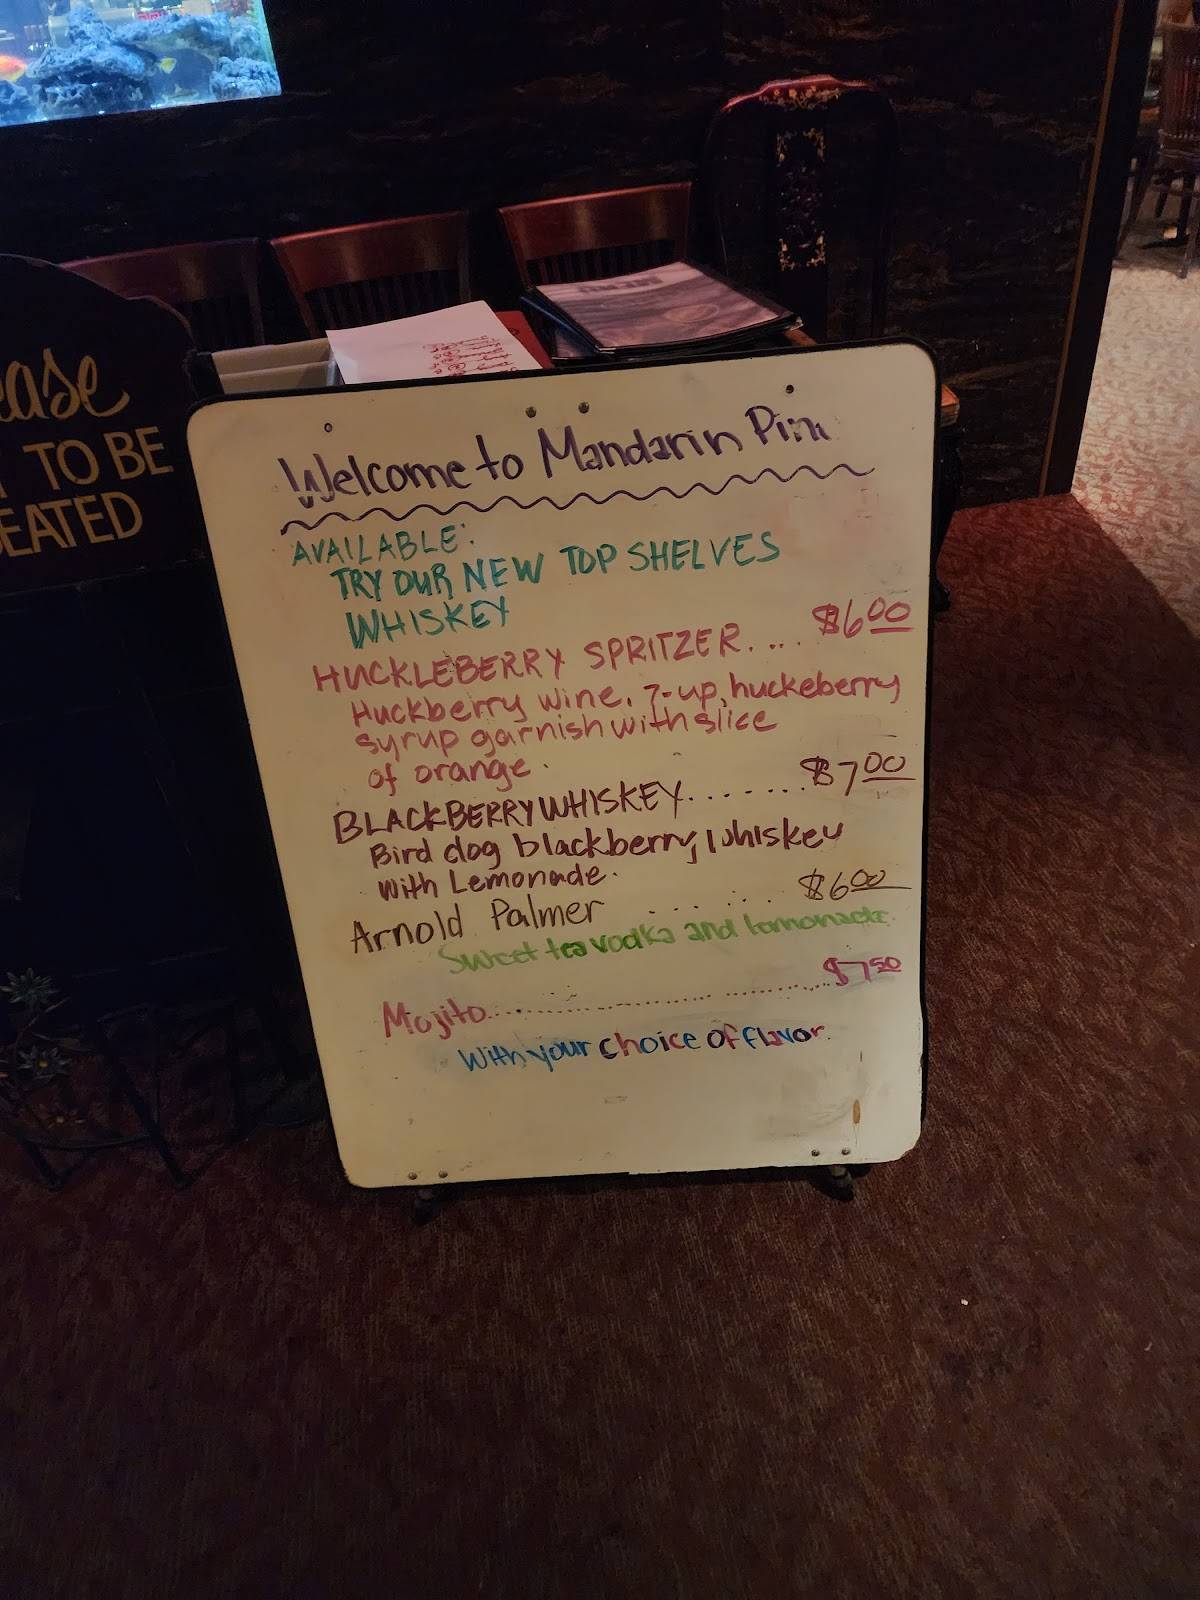 ease
TO BE
EATED
MENU
Welcome to Mandarin Pine
AVAILABLE:
TRY OUR NEW TOP SHELVES
WHISKEY
HUCKLEBERRY SPRITZER..... $6.00
Huckberry wine, 7-up, huckeberry
syrup garnish with slice
of orange.
BLACKBERRY WHISKEY........ $7.00
Bird dog blackberry whiskey
with Lemonade.
Arnold Palmer ...... $6.00
Sweet tea vodka and lemonade.
Mojito........................ $7.50
With your choice of flavor.